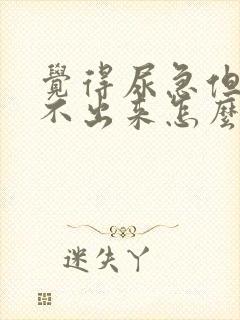 覺得尿急但
不出来怎麼
迷失丫